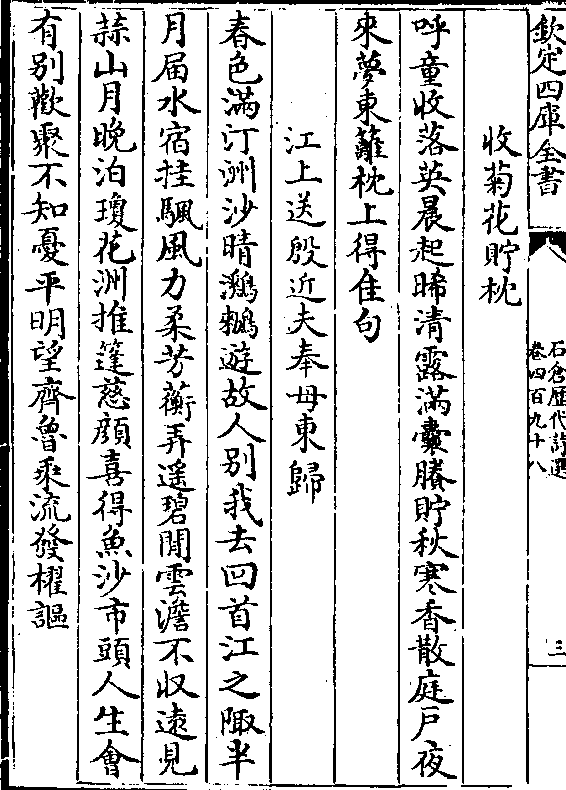 欽定四庫全書
石倉歷代詩選
卷四百九十八
三
收菊花貯枕
呼童收落英晨起晞清露滿囊賸貯秋寒香散庭戶夜
來夢東籬枕上得佳句
江上送殷近夫奉母東歸
春色滿汀洲沙晴㶉鶒遊故人别我去回首江之陬半
月届水宿挂颿風力柔芳蘅弄遥碧閒雲澹不收遠見
蒜山月晚泊瓊花洲推篷慈顔喜得魚沙市頭人生會
有别歡聚不知憂平明望齊魯乘流發櫂謳